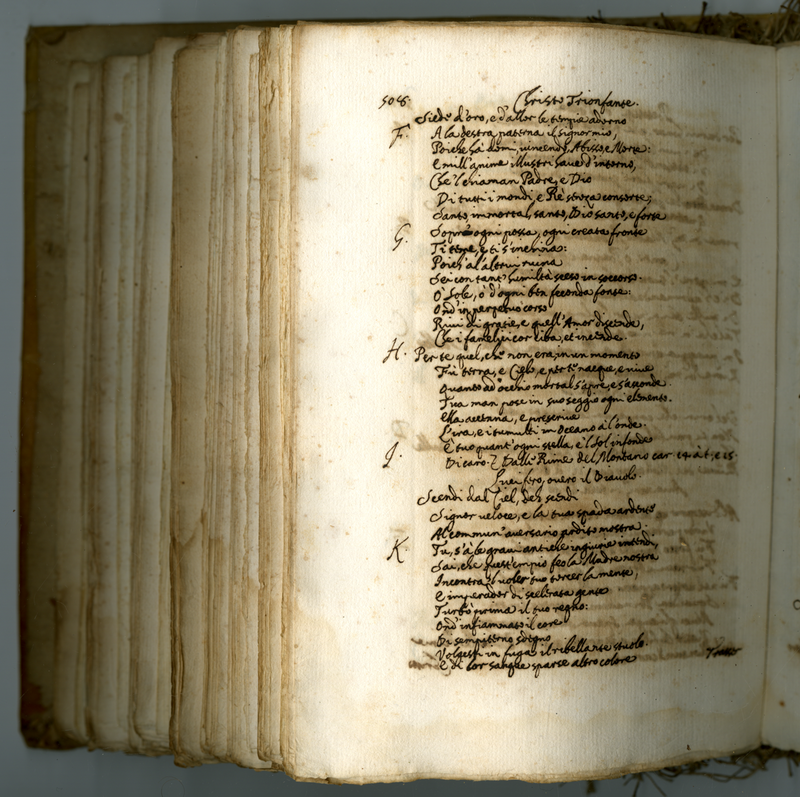 508. Christo Trionfante.
Siede d'oro, e d'allor le tempia adorno
F. A la destra paterna il signor mio,
Poiche ha domi, vincendo, Abisso, e Morte:
E mill'anime illustri have d'intorno,
Che'l chiaman Padre, e Dio
Di tutti i mondi, e Re senza consorte;
Santo, immortal, santo, Dio santo, e forte
G. Sopra ogni possa, ogni creata fronte
Ti teme, e ti s'inchina:
Poich' a l'altrui ruina
Sei con tant' humiltà sceso in soccorso.
O' Sole, ò d'ogni ben feconda fonte:
Ond'in perpetuo corso
Rivi di gratie, e quell'Amor discende,
Che i famelici cor ciba, et incende.
H. Per te quel, che non era, in un momento
Fù terra, e Cielo, e per te nacque, e vive
Quanto ad' occhio mortal s'apre, e s'asconde.
Tua man pose in suo seggio ogni elemento.
Ella accenna, e prescrive
L'ira, e i tumulti in Oceano à l'onde.
E tuo quant' ogni stella, e'l Sol infonde
I. Di caro. Dalle Rime del Montano car. 14. à t. e 15.
Lucifero, overo il Diavolo.
Scendi dal Ciel, deh scendi
Signor veloce, e la tua spada ardente
Al commun' aversario ardito mostra.
K. Tu, s'à le gravi antiche ingiurie intendi,
Sai, che quest'empio feo la Madre nostra
Incontra il voler tuo torcer la mente,
E imperador di scelerata gente
Turbò prima il tuo regno:
Ond' infiammato il core
Di sempiterno sdegno
Volgesti in fuga il ribellante stuolo.
E di lor sangue sparse altro colore